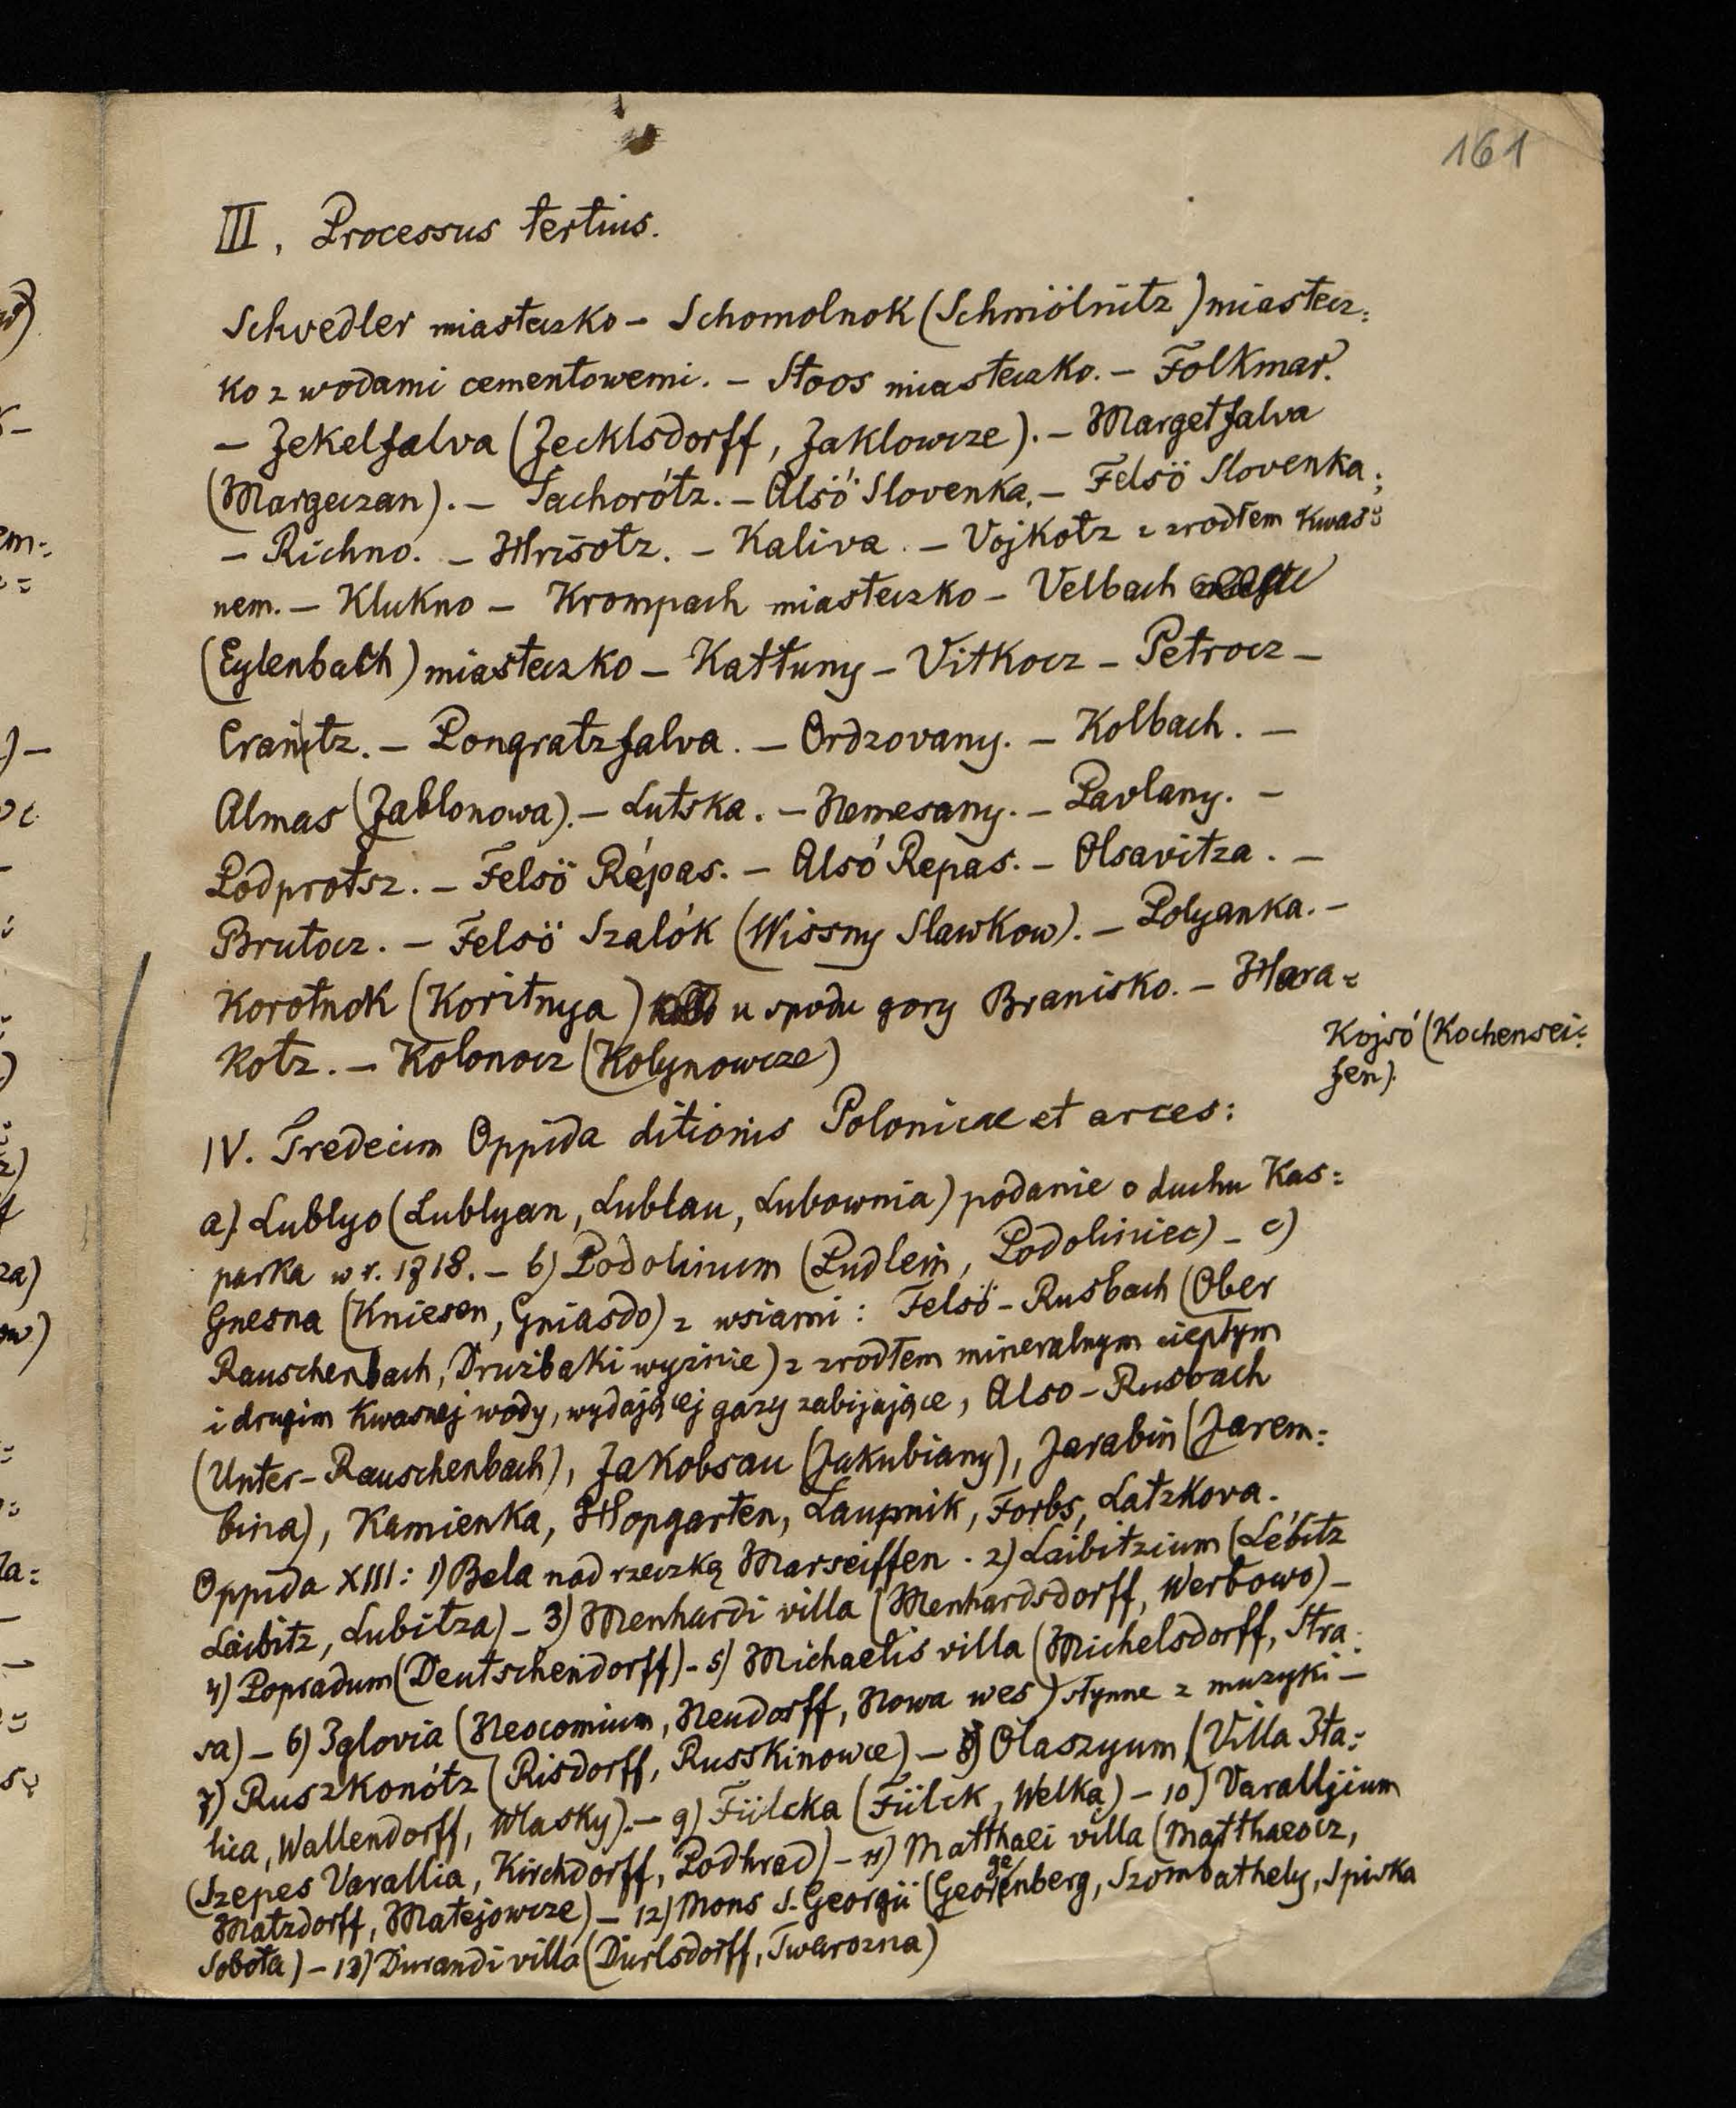 161
III, Processus tertius.
Schvedler miasteczko – Schomolnok (Schmölnitz) miastecz=
ko z wodami cementowemi. – Stoos miasteczko. – Folkmar.
– Jekelfalva (Jecklsdorff, Jaklowcze). – Margetfalva
(Margeczan). – Sachorótz. – Alsó Slovenka. – Felsö Slovenka;
– Richno. – Hrisotz. – Kaliva. – Vojkotz z zrodłem kwas=
nem. – Klukno – Krompach miasteczko – Velbach
(Eylenbach) miasteczko – Kattuny – Vitkocz – Petrocz –
Cranitz. – Pongratzfalva. – Ordzovany. – Kolbach. –
Almas (Jablonowa). – Lutska. – Nemesany. – Pavlany. –
Podprotsz. – Felsö Répas. – Alsó Repas. – Olsavitza. –
Brutocz. – Felsö Szalók (Wissny Slawkow). – Polyanka. –
Korotnok (Koritnya) u spodu gory Branisko. – Hara=
kotz. – Kolonocz (Kolynowcze)
Kojsó (Kochensei=
fen).
IV. Tredecim Oppida ditionis Polonicae et arces:
a) Lublyo (Lublyan, Lublau, Lubownia) podanie o duchu Kas=
parka w r. 1718. – b) Podolinum (Pudlein, Podoliniec) – c)
Gnesna (Kniesen, Gniasdo) z wsiami: Felsö-Rusbach (Ober
Rauschenbach, Družbaki wyżnie) z zrodłem mineralnym ciepłym
i drugim kwasnej wody, wydającej gazy zabijające, Also-Rusbach
(Unter-Rauschenbach), Jakobsau (Jakubiany), Jarabin (Jarem=
bina), Kamienka, Hopgarten, Laupnik, Forbs, Latzkova.
Oppida XIII: 1) Bela nad rzeczką Marseiffen. 2) Laibitzium (Lébitz
Laibitz, Lubitza) – 3) Menhardi villa (Menhardsdorff, Werbowo) –
4) Popradum (Deutschendorff) – 5) Michaelis villa (Michelsdorff, Stra=
sa) – 6) Iglovia (Neocomium, Neudorff, Nowa wes) słynne z muzyki –
7) Ruszkonótz (Risdorff, Russkinowce) – 8) Olaszyum (Villa Ita=
lica, Wallendorff, Wlasky). – 9) Fülcka (Fülck, Welka) – 10) Varalljium
(Szepes Varallia, Kirchdorff, Podhrad) – 11) Matthaei villa (Matthaeocz,
Matzdorff, Matejowcze) – 12) Mons S. Georgii (Georgenberg, Szombathely, Spiska
Sobota) – 13) Durandi villa (Durlsdorff, Twarozna)